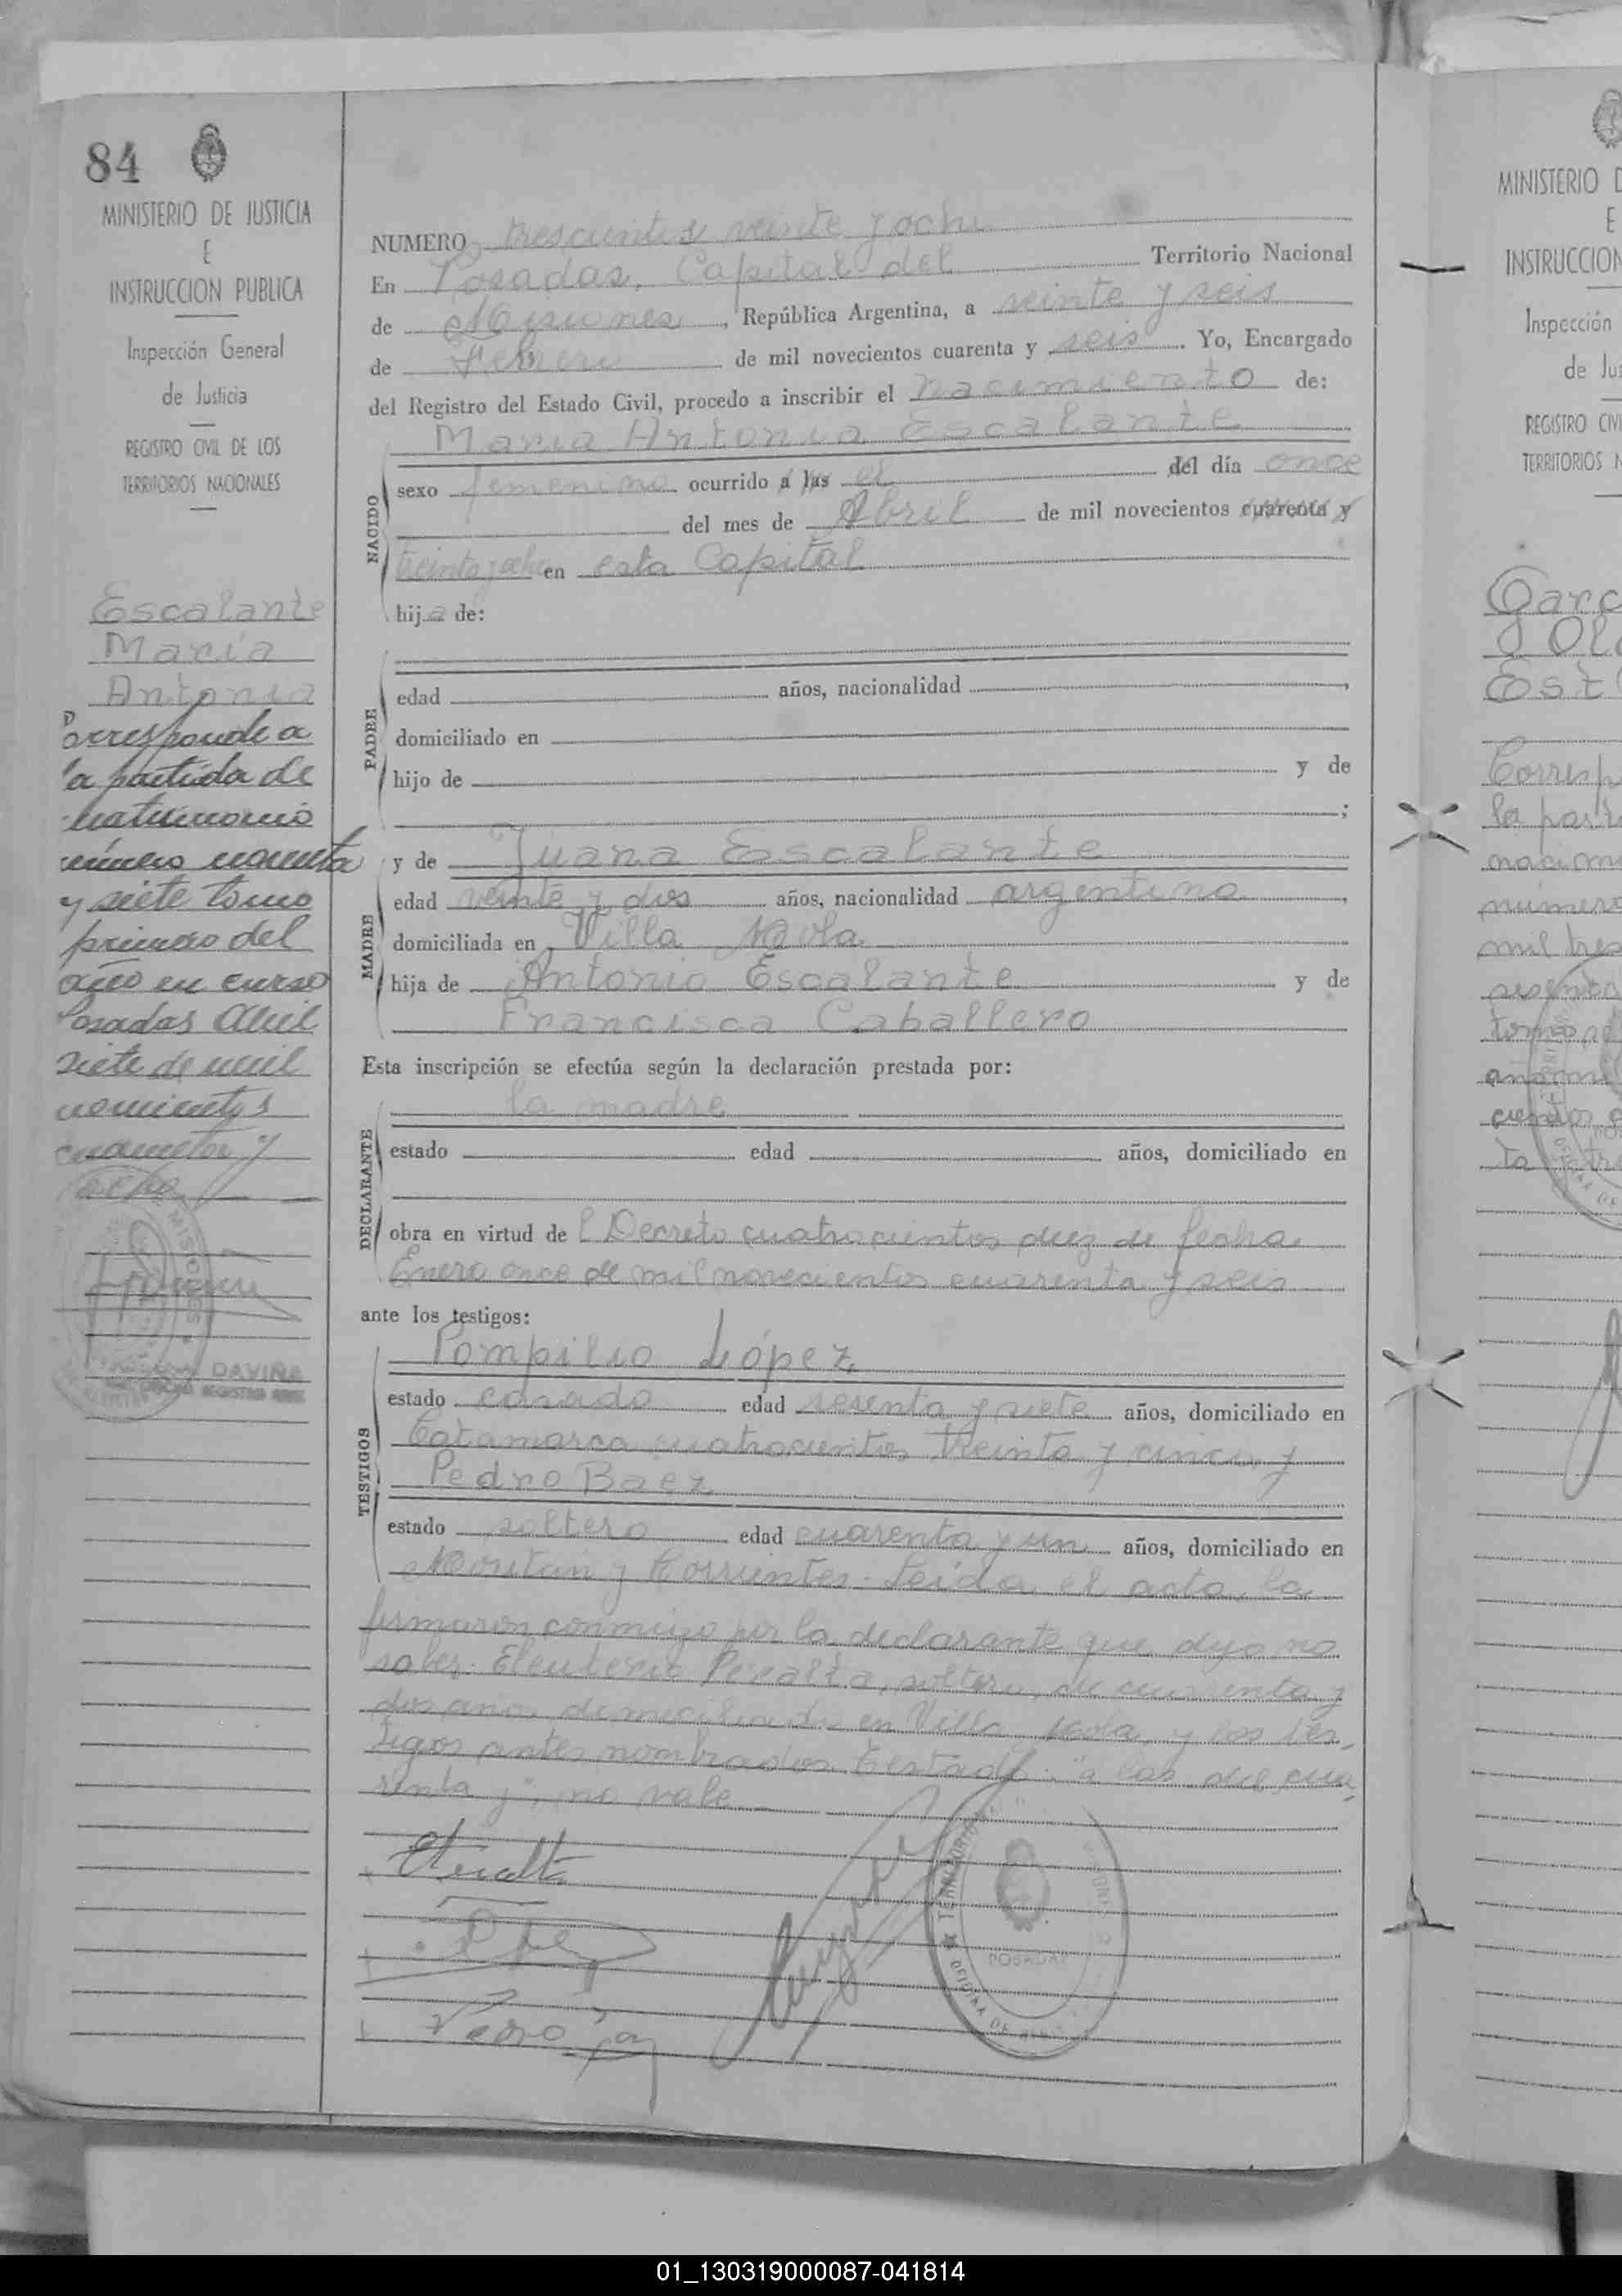 84
MINISTERIO DE JUSTICIA
E
INSTRUCCION PUBLICA
Inspección General
de Justicia
REGISTRO CIVIL DE LOS
TERRITORIOS NACIONALES
Escalante
María
Antonia
Corresponde a
la partida de
matrimonio
número noventa
y siete tomo
primero del
año en curso
Posadas Abril
siete de mil
novecientos
cuarenta y
ocho
DAVIÑA
NUMERO trescientos veinte y ocho
En Posadas, Capital del Territorio Nacional
de Misiones, República Argentina, a veinte y seis
de Febrero de mil novecientos cuarenta y seis. Yo, Encargado
del Registro del Estado Civil, procedo a inscribir el nacimiento de:
María Antonia Escalante
NACIDO
sexo femenino ocurrido a las el del día once
del mes de Abril de mil novecientos cuarenta y
treinta y ocho en esta Capital
hija de:
PADRE
edad años, nacionalidad ,
domiciliado en
hijo de y de
;
MADRE
y de Juana Escalante
edad veinte y dos años, nacionalidad argentina,
domiciliada en Villa Mola
hija de Antonio Escalante y de
Francisca Caballero
Esta inscripción se efectúa según la declaración prestada por:
DECLARANTE
la madre
estado edad años, domiciliado en
obra en virtud de l Decreto cuatrocientos diez de fecha
Enero once de mil novecientos cuarenta y seis
ante los testigos:
TESTIGOS
Pompilio López
estado casado edad sesenta y siete años, domiciliado en
Catamarca cuatrocientos treinta y cinco y
Pedro Baez
estado soltero edad cuarenta y un años, domiciliado en
y Corrientes. Leída el acta, la
firmaron conmigo por la declarante que dijo no
saber: Eleuterio Peralta, soltero, de cuarenta y
dos años, domiciliado en Villa Mola y los tes-
tigos antes nombrados. Testado: "a las del cua-
renta y", no vale.
Peralta
POSADAS
MINISTERIO D
E
INSTRUCCION
Inspección
de Jus
REGISTRO CIVI
TERRITORIOS N
Garc
Corresp
la parti
nacimi
número
mil tres
tomo
01_130319000087-041814